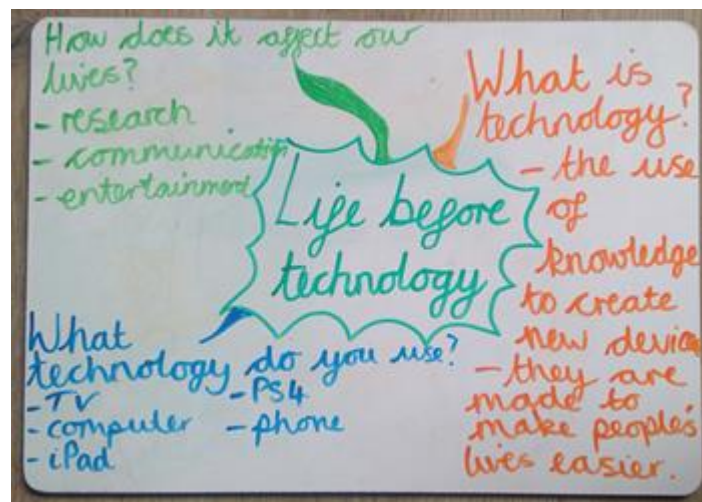 How does it affect our
lives?
- research
- communication
- entertainment
Life before
technology
What is
technology?
- the use
of
knowledge
to create
new device
- they are
made to
make people's
lives easier.
What
technology do you use?
- TV
- computer
- iPad
- PS4
- phone